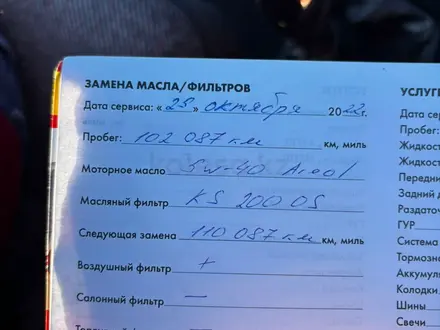 ЗАМЕНА МАСЛА/ФИЛЬТРОВ
Дата сервиса: «25» октября 2022г.
Пробег: 102 087 км км, миль
Моторное масло 5w-40 Areol
Масляный фильтр KS 200 OS
Следующая замена 110 087 км км, миль
Воздушный фильтр +
Салонный фильтр —
УСЛУГ
Дата сер
Пробег:
Жидкост
Жидкост
Передни
Задний д
Раздаточ
ГУР
Система
Тормозн
Аккумул
Колодки
Шины
Свечи